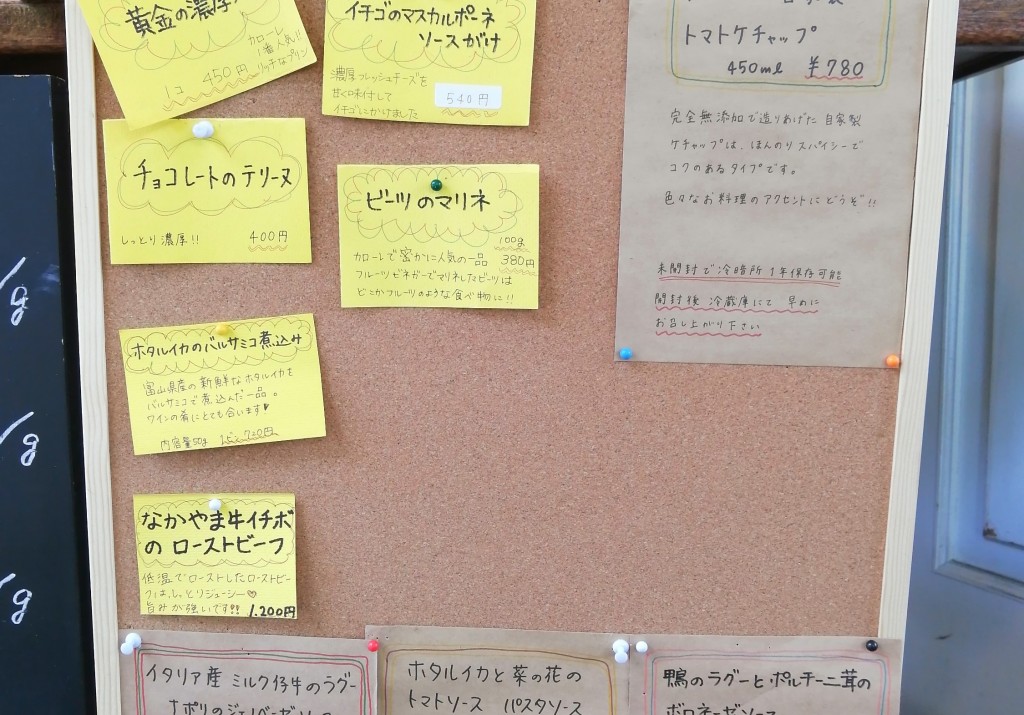 黄金の濃厚
カローレ
1番人気!!
リッチなプリン
1コ 450円
イチゴのマスカルポーネ
ソースがけ
濃厚フレッシュチーズを
甘く味付して
イチゴにかけました
540円
トマトケチャップ
450ml ¥780
完全無添加で造りあげた 自家製
ケチャップは、ほんのりスパイシーで
コクのあるタイプです。
色々なお料理のアクセントにどうぞ!!
未開封で冷暗所1年保存可能
開封後 冷蔵庫にて 早めに
お召し上がり下さい
チョコレートのテリーヌ
しっとり濃厚!! 400円
ビーツのマリネ
100g
カローレで密かに人気の一品 380円
フルーツビネガーでマリネしたビーツは
どこかフルーツのような食べ物に!!
ホタルイカのバルサミコ煮込み
富山県産の新鮮なホタルイカを
バルサミコで煮込んだ一品。
ワインの肴にとても合います♥
内容量50g
なかやま牛イチボ
の ローストビーフ
低温でローストしたローストビー
フは、しっとりジューシー♡
旨みが強いです!! 1,200円
イタリア産 ミルク仔牛のラグー
ナポリのジェノベーゼソース
ホタルイカと菜の花の
トマトソース パスタソース
鴨のラグーとポルチーニ茸の
ボロネーゼソース
g
g
g